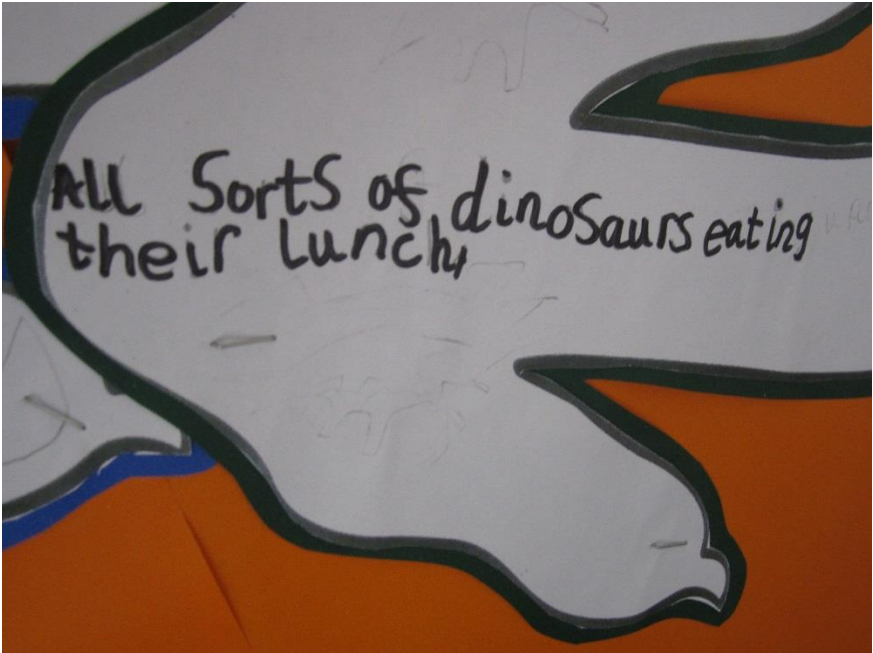 All Sorts of dinosaurs eating
their lunch,